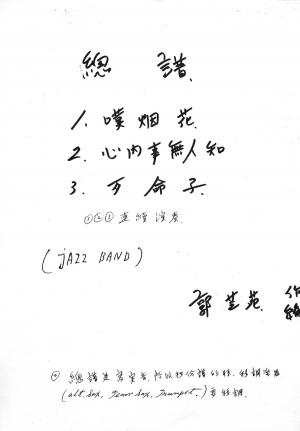 總 譜
1. 噗烟花
2. 心內事無人知
3. 歹命子
①②③連續演奏
(JAZZ BAND)
郭芝苑 作
編
總譜是寫實音,所以
(alt. Sax, Tenor Sax, Trumpet,) 要移調